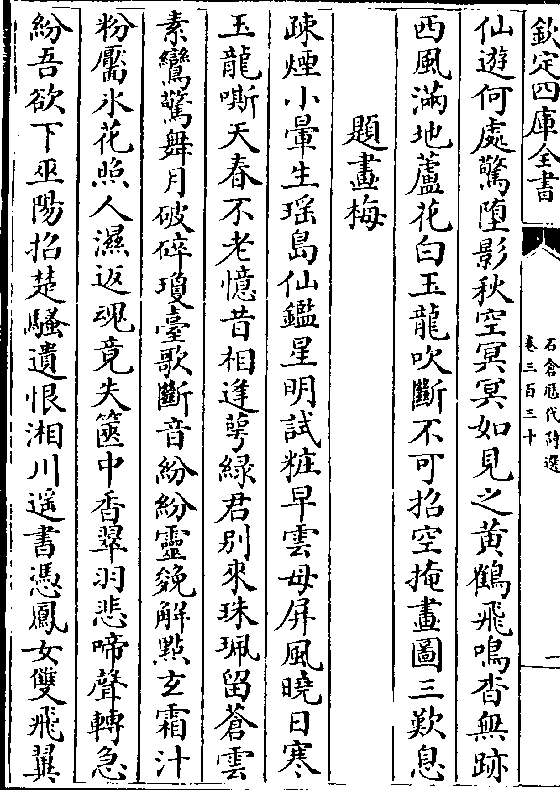 欽定四庫全書
石倉歷代詩選
卷三百三十
二
仙遊何處驚墮影秋空冥冥如見之黄鶴飛鳴杳無跡
西風滿地蘆花白玉龍吹斷不可招空掩畫圖三歎息
題畫梅
疎煙小暈生瑶島仙鑑星明試粧早雲母屏風曉日寒
玉龍嘶天春不老憶昔相逢萼緑君别來珠珮留蒼雲
素鸞驚舞月破碎瓊臺歌斷音紛紛靈㝹解點玄霜汁
粉靨氷花照人濕返魂竟失篋中香翠羽悲啼聲轉急
紛吾欲下巫陽招楚騷遺恨湘川遥書憑鳳女雙飛翼